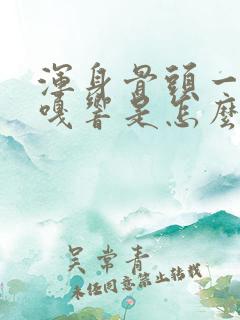 渾身骨頭一
嘎響是怎麼
吴常青
未经同意禁止转载